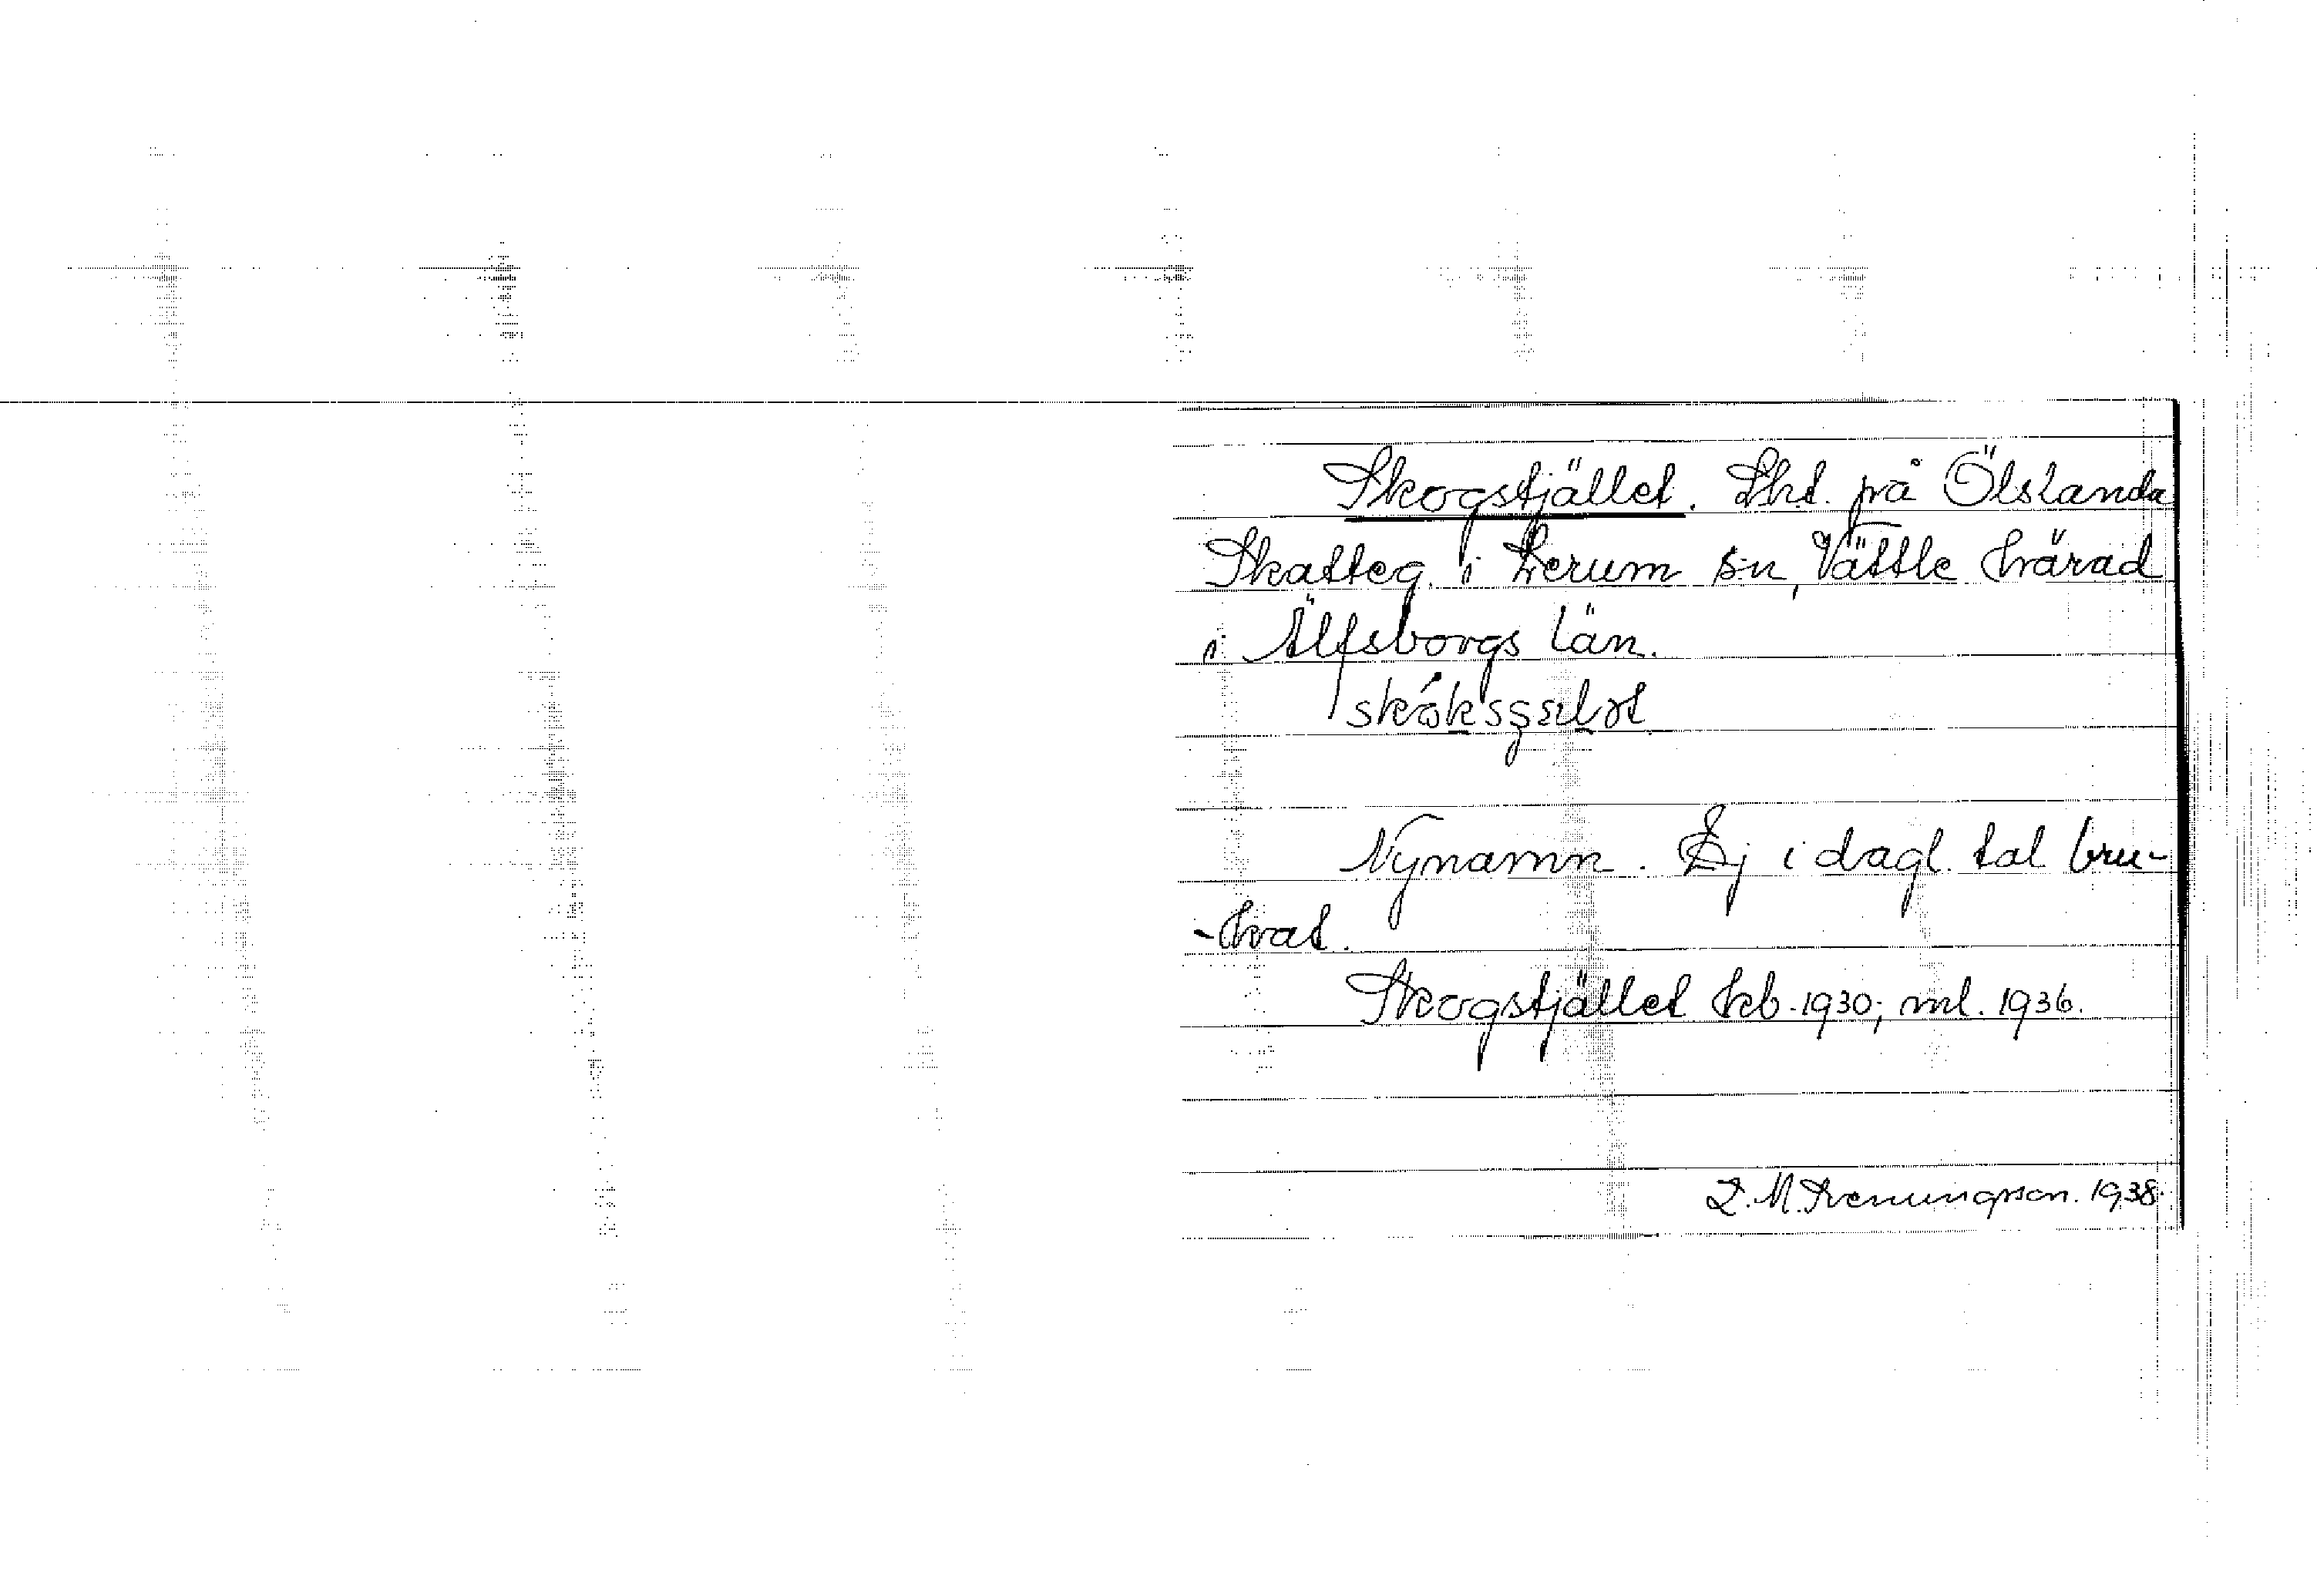 Skogstjället. Lht. på Ölslanda
Skatteg. i Lerum sn, Vättle härad
i Älfsborgs län.
Nynamn. Ej i dagl. tal bru-
-kat.
Skogstjället kb. 1930; ml. 1936.
1938.